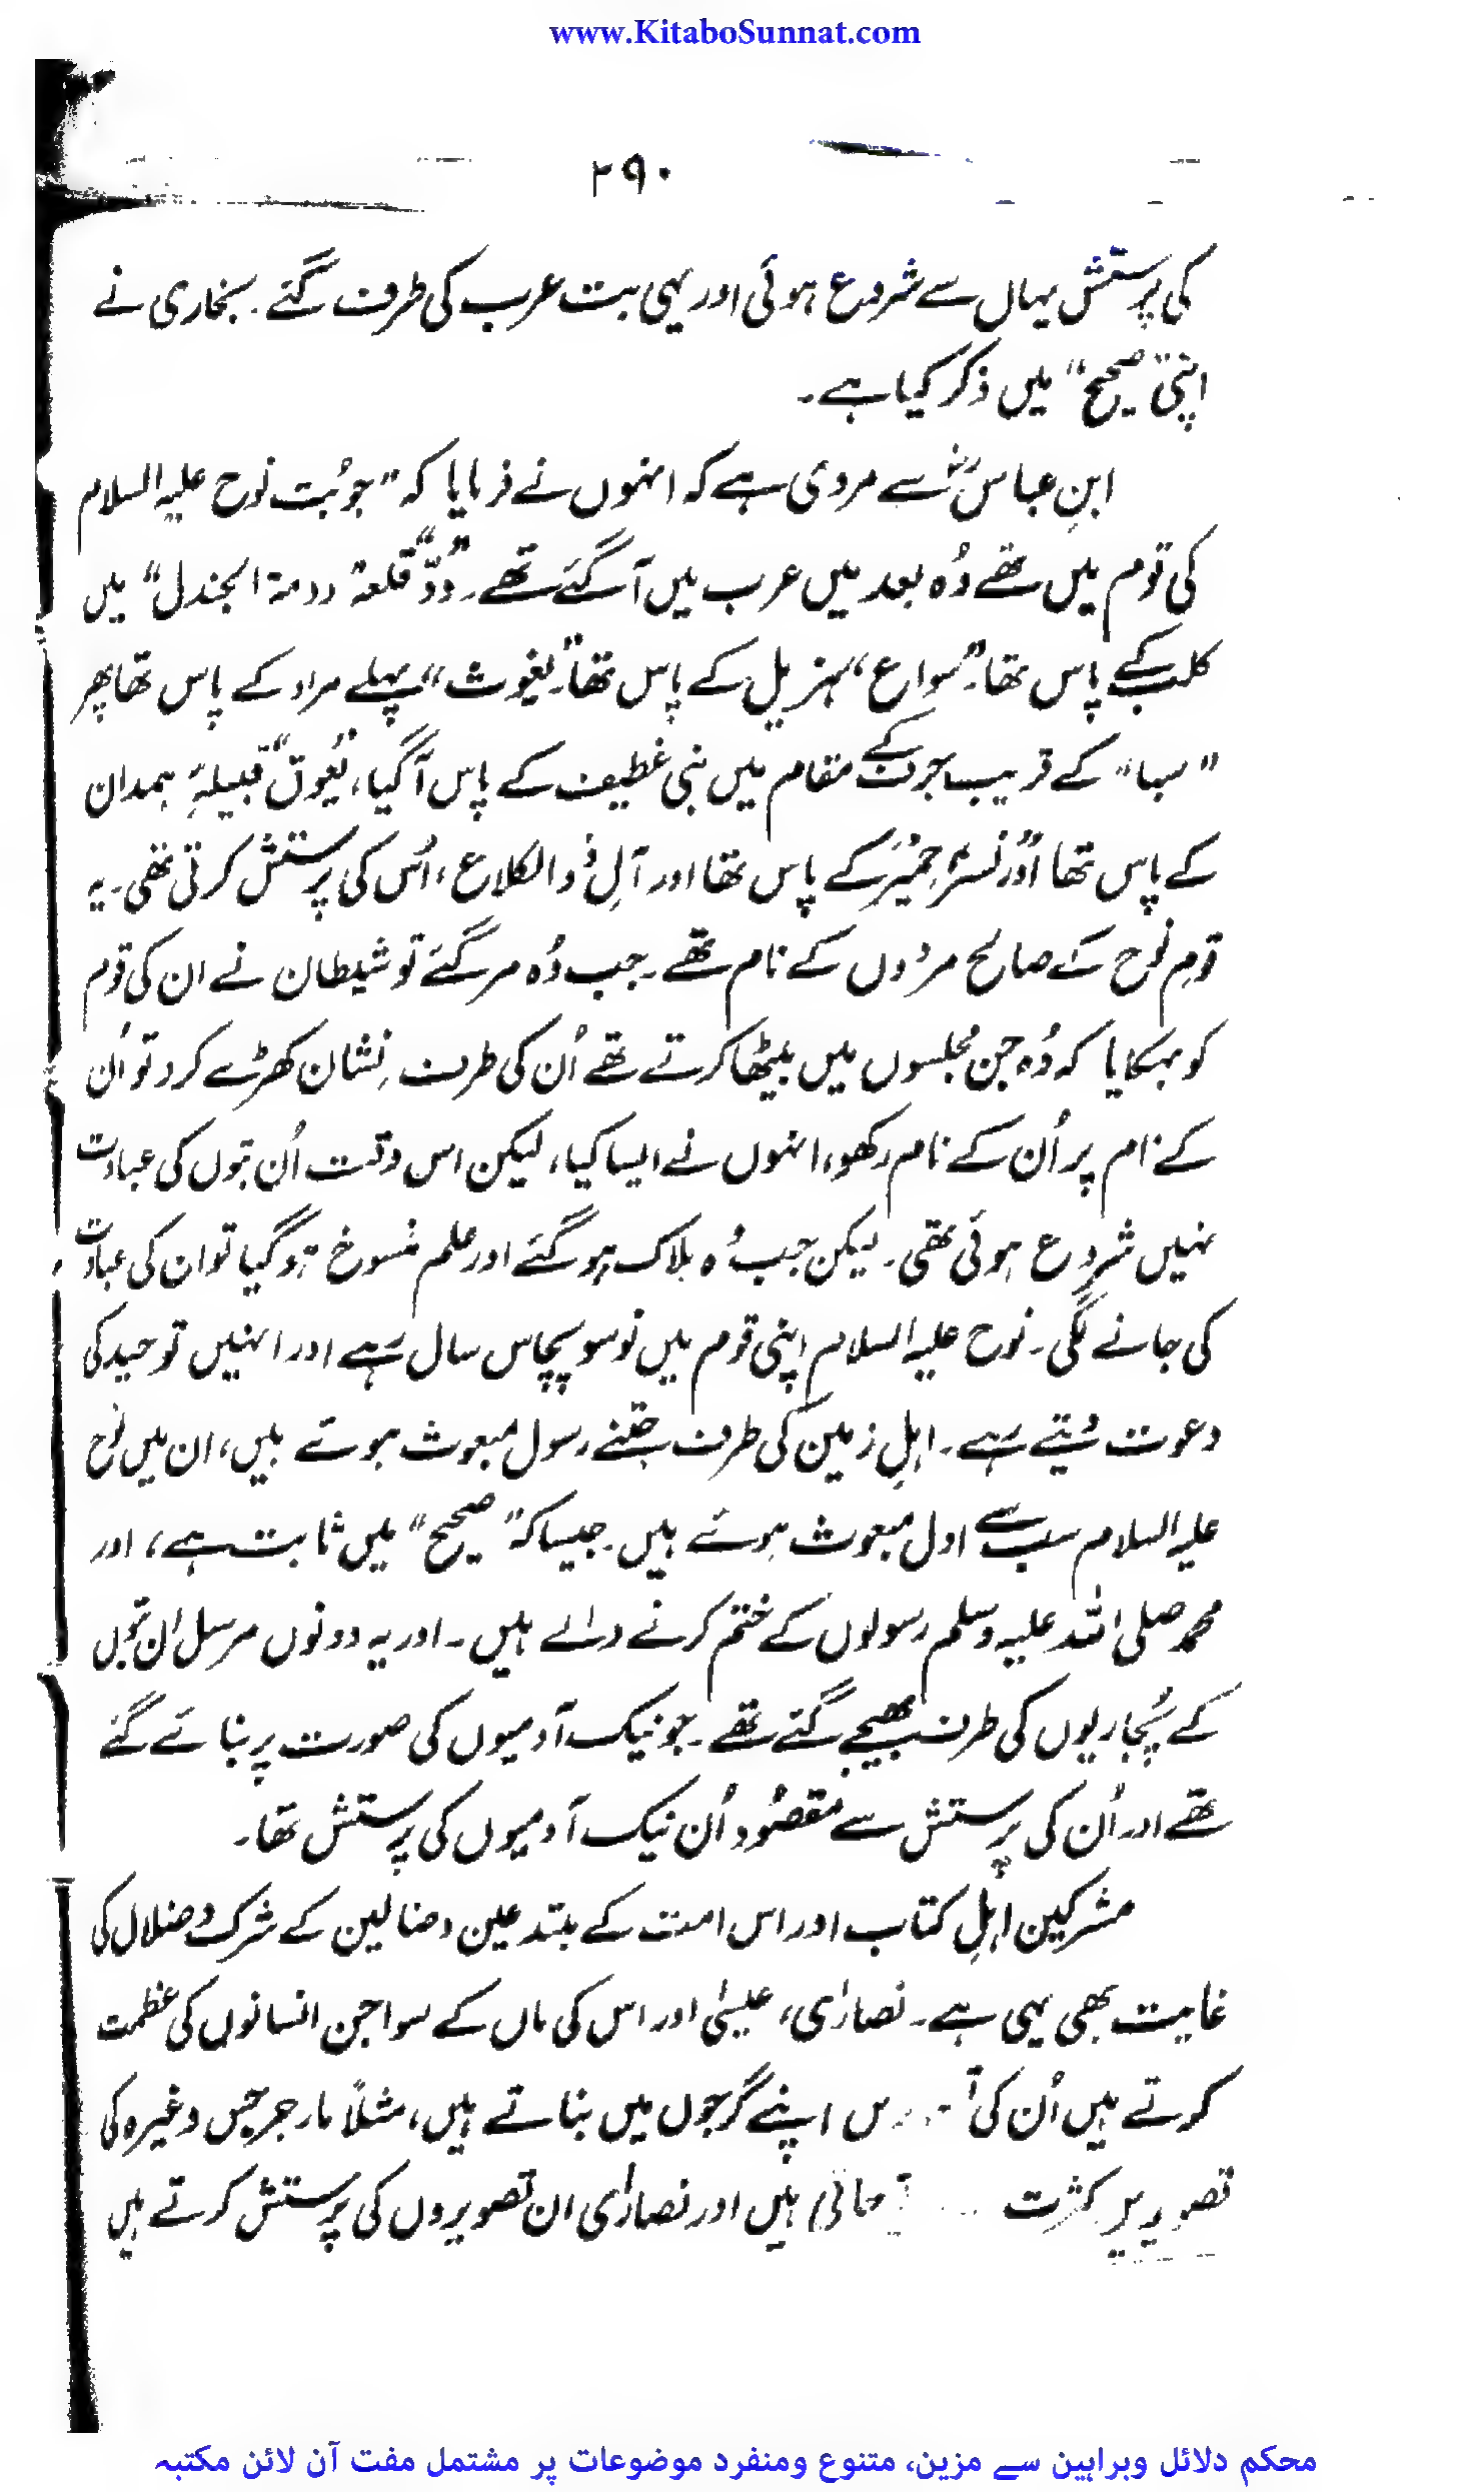 www.KitaboSunnat.com
۲۹۰
کی پرستش یہاں سے شروع ہوئی اور یہی بت عرب کی طرف گئے۔ بخاری نے
اپنی ”صحیح“ میں ذکر کیا ہے۔
ابنِ عباسؓ سے مروی ہے کہ انہوں نے فرمایا کہ ”جو بُت نوح علیہ السلام
کی قوم میں تھے وُہ بعد میں عرب میں آ گئے تھے۔ ”وُدّ“ قلعۃ دومۃ الجندل“ میں
کلب کے پاس تھا۔ ”سواع“ ہزیل کے پاس تھا۔ ”یغوث“ پہلے مراد کے پاس تھا پھر
”سبا“ کے قریب جرف کے مقام میں بنی غطیف کے پاس آ گیا، ”یَعُوق“ قبیلۂ ہمدان
کے پاس تھا اور ”نسر“ حِمْیَر کے پاس تھا اور آلِ ذُوالکلاع، اُس کی پرستش کرتی تھی۔ یہ
قومِ نوح کے صالح مردوں کے نام تھے۔ جب وُہ مر گئے تو شیطان نے ان کی قوم
کو بہکایا کہ وُہ جن مجلسوں میں بیٹھا کرتے تھے اُن کی طرف نِشان کھڑے کر دو تو اُن
کے نام پر اُن کے نام رکھو، انہوں نے ایسا کیا، لیکن اس وقت اُن بتوں کی عبادت
نہیں شروع ہوئی تھی۔ لیکن جب وُہ ہلاک ہو گئے اور علم منسوخ ہو گیا تو ان کی عبادت
کی جانے لگی۔ نوح علیہ السلام اپنی قوم میں نو سو پچاس سال رہے اور انہیں توحید کی
دعوت دیتے رہے۔ اہلِ زمین کی طرف جتنے رسول مبعوث ہوئے ہیں، ان میں نوح
علیہ السلام سب سے اول مبعوث ہوئے ہیں۔ جیسا کہ ”صحیح“ میں ثابت ہے، اور
محمد صلی اللہ علیہ وسلم رسولوں کے ختم کرنے والے ہیں۔ اور یہ دونوں مرسل اُن بتوں
کے پُجاریوں کی طرف بھیجے گئے تھے۔ جو نیک آدمیوں کی صورت پر بنائے گئے
تھے اور اُن کی پرستش سے مقصُود اُن نیک آدمیوں کی پرستش تھا۔
مشرکین اہلِ کتاب اور اس امت کے مبتدعین وضالین کے شرک وضلال کی
غایت بھی یہی ہے۔ نصارٰی، عیسیٰ اور اس کی ماں کے سوا جن انسانوں کی عظمت
کرتے ہیں اُن کی اپنے گرجوں میں بناتے ہیں، مثلاً مار جرجیس وغیرہ کی
تصویریں بکثرت ہیں اور نصارٰی ان تصویروں کی پرستش کرتے ہیں
محکم دلائل وبراہین سے مزین، متنوع ومنفرد موضوعات پر مشتمل مفت آن لائن مکتبہ